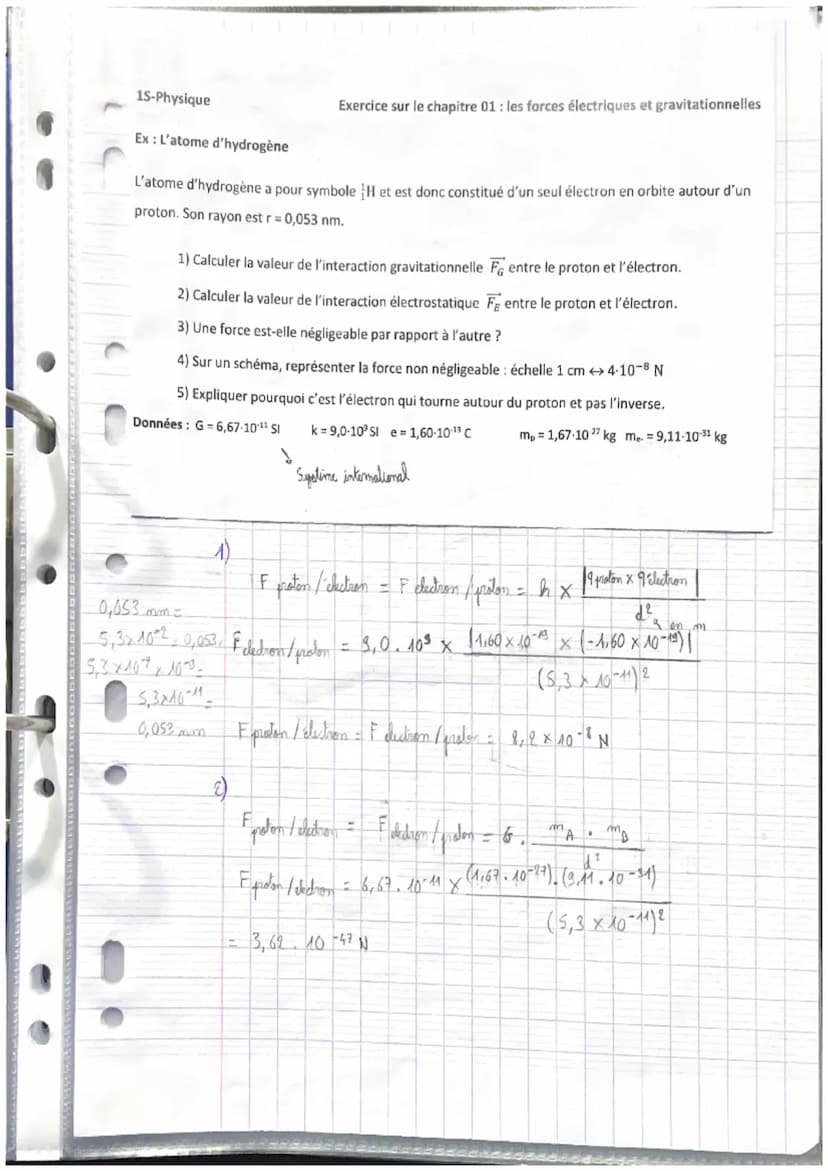 1S-Physique
Exercice sur le chapitre 01 : les forces électriques et gravitationnelles
Ex : L'atome d'hydrogène
L'atome d'hydrogène a pour symbole ¹₁H et est donc constitué d'un seul électron en orbite autour d'un
proton. Son rayon est r = 0,053 nm.
1) Calculer la valeur de l'interaction gravitationnelle F_G entre le proton et l'électron.
2) Calculer la valeur de l'interaction électrostatique F_E entre le proton et l'électron.
3) Une force est-elle négligeable par rapport à l'autre ?
4) Sur un schéma, représenter la force non négligeable : échelle 1 cm ↔ 4·10⁻⁸ N
5) Expliquer pourquoi c'est l'électron qui tourne autour du proton et pas l'inverse.
Données : G = 6,67·10⁻¹¹ SI k = 9,0·10⁹ SI e = 1,60·10⁻¹⁹ C mₚ = 1,67·10⁻²⁷ kg mₑ₋ = 9,11·10⁻³¹ kg
international
1)
F proton/électron = F électron/proton = k × |q proton × q électron| / d² → en m
0,053 nm =
5,3×10⁻² = 0,053
F electron/proton = 9,0 . 10⁹ × |1,60 × 10⁻¹⁹ × (-1,60 × 10⁻¹⁹)| / (5,3 × 10⁻¹¹)²
5,3×10⁻² × 10⁻⁹ =
5,3×10⁻¹¹ =
0,053 nm
F proton/électron = F electron/proton = 8,2 × 10⁻⁸ N
2)
F proton/electron = F electron/proton = G . m_A . m_B / d²
F proton/electron = 6,67 . 10⁻¹¹ × (1,67 . 10⁻²⁷) . (9,11 . 10⁻³¹) / (5,3 × 10⁻¹¹)²
= 3,62 . 10⁻⁴⁷ N